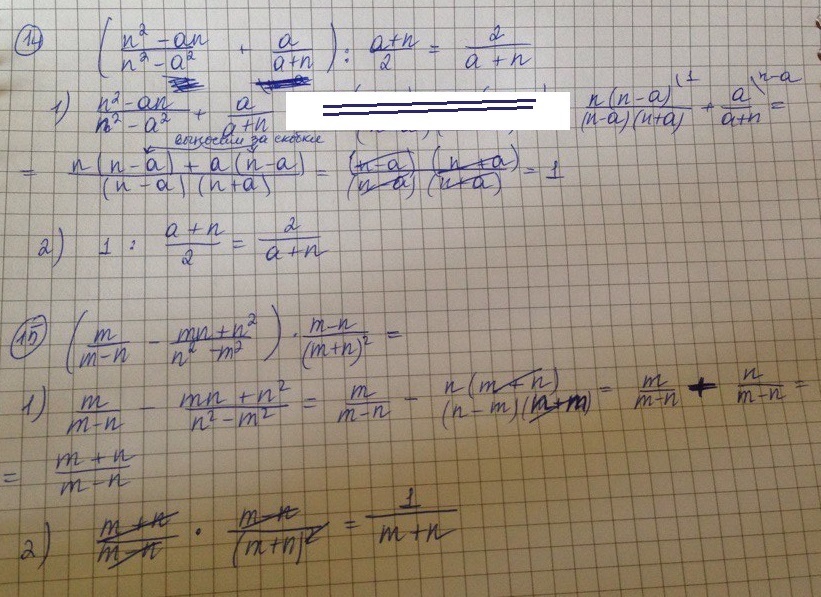 14 ( (n² - an)/(n² - a²) + a/(a+n) ) : (a+n)/2 = 2/(a+n)
1) (n² - an)/(n² - a²) + a/(a+n) n(n-a)\1/((n-a)(n+a)) + a\n-a/(a+n) =
выносим за скобки
= (n(n-a) + a(n-a))/((n-a)(n+a)) = ((n-a)(n+a))/((n-a)(n+a)) = 1
2) 1 : (a+n)/2 = 2/(a+n)
15 ( m/(m-n) - (mn+n²)/(n²-m²) ) · (m-n)/(m+n)² =
1) m/(m-n) - (mn+n²)/(n²-m²) = m/(m-n) - n(m+n)/((n-m)(n+m)) = m/(m-n) + n/(m-n) =
= (m+n)/(m-n)
2) (m+n)/(m-n) · (m-n)/(m+n)² = 1/(m+n)